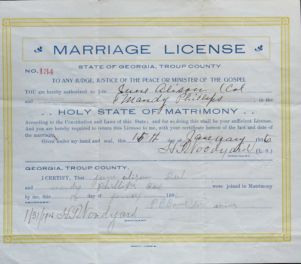 MARRIAGE LICENSE
STATE OF GEORGIA, TROUP COUNTY
NO. 134
TO ANY JUDGE, JUSTICE OF THE PEACE OR MINISTER OF THE GOSPEL
YOU are hereby authorized to join June Alison (Col
and Mandy Phillips in the
HOLY STATE OF MATRIMONY
According to the Constitution and Laws of this State; and for so doing this shall be your sufficient License.
And you are hereby required to return this License to me, with your certificate hereon of the fact and date of
the marriage.
Given under my hand and seal, this 18th day of January 190
H.P. Woodyard (L.S.)
GEORGIA, TROUP COUNTY.
I CERTIFY, That Col
and mandy phillips were joined in Matrimony
by me, this day of 190
H.P. Woodyard